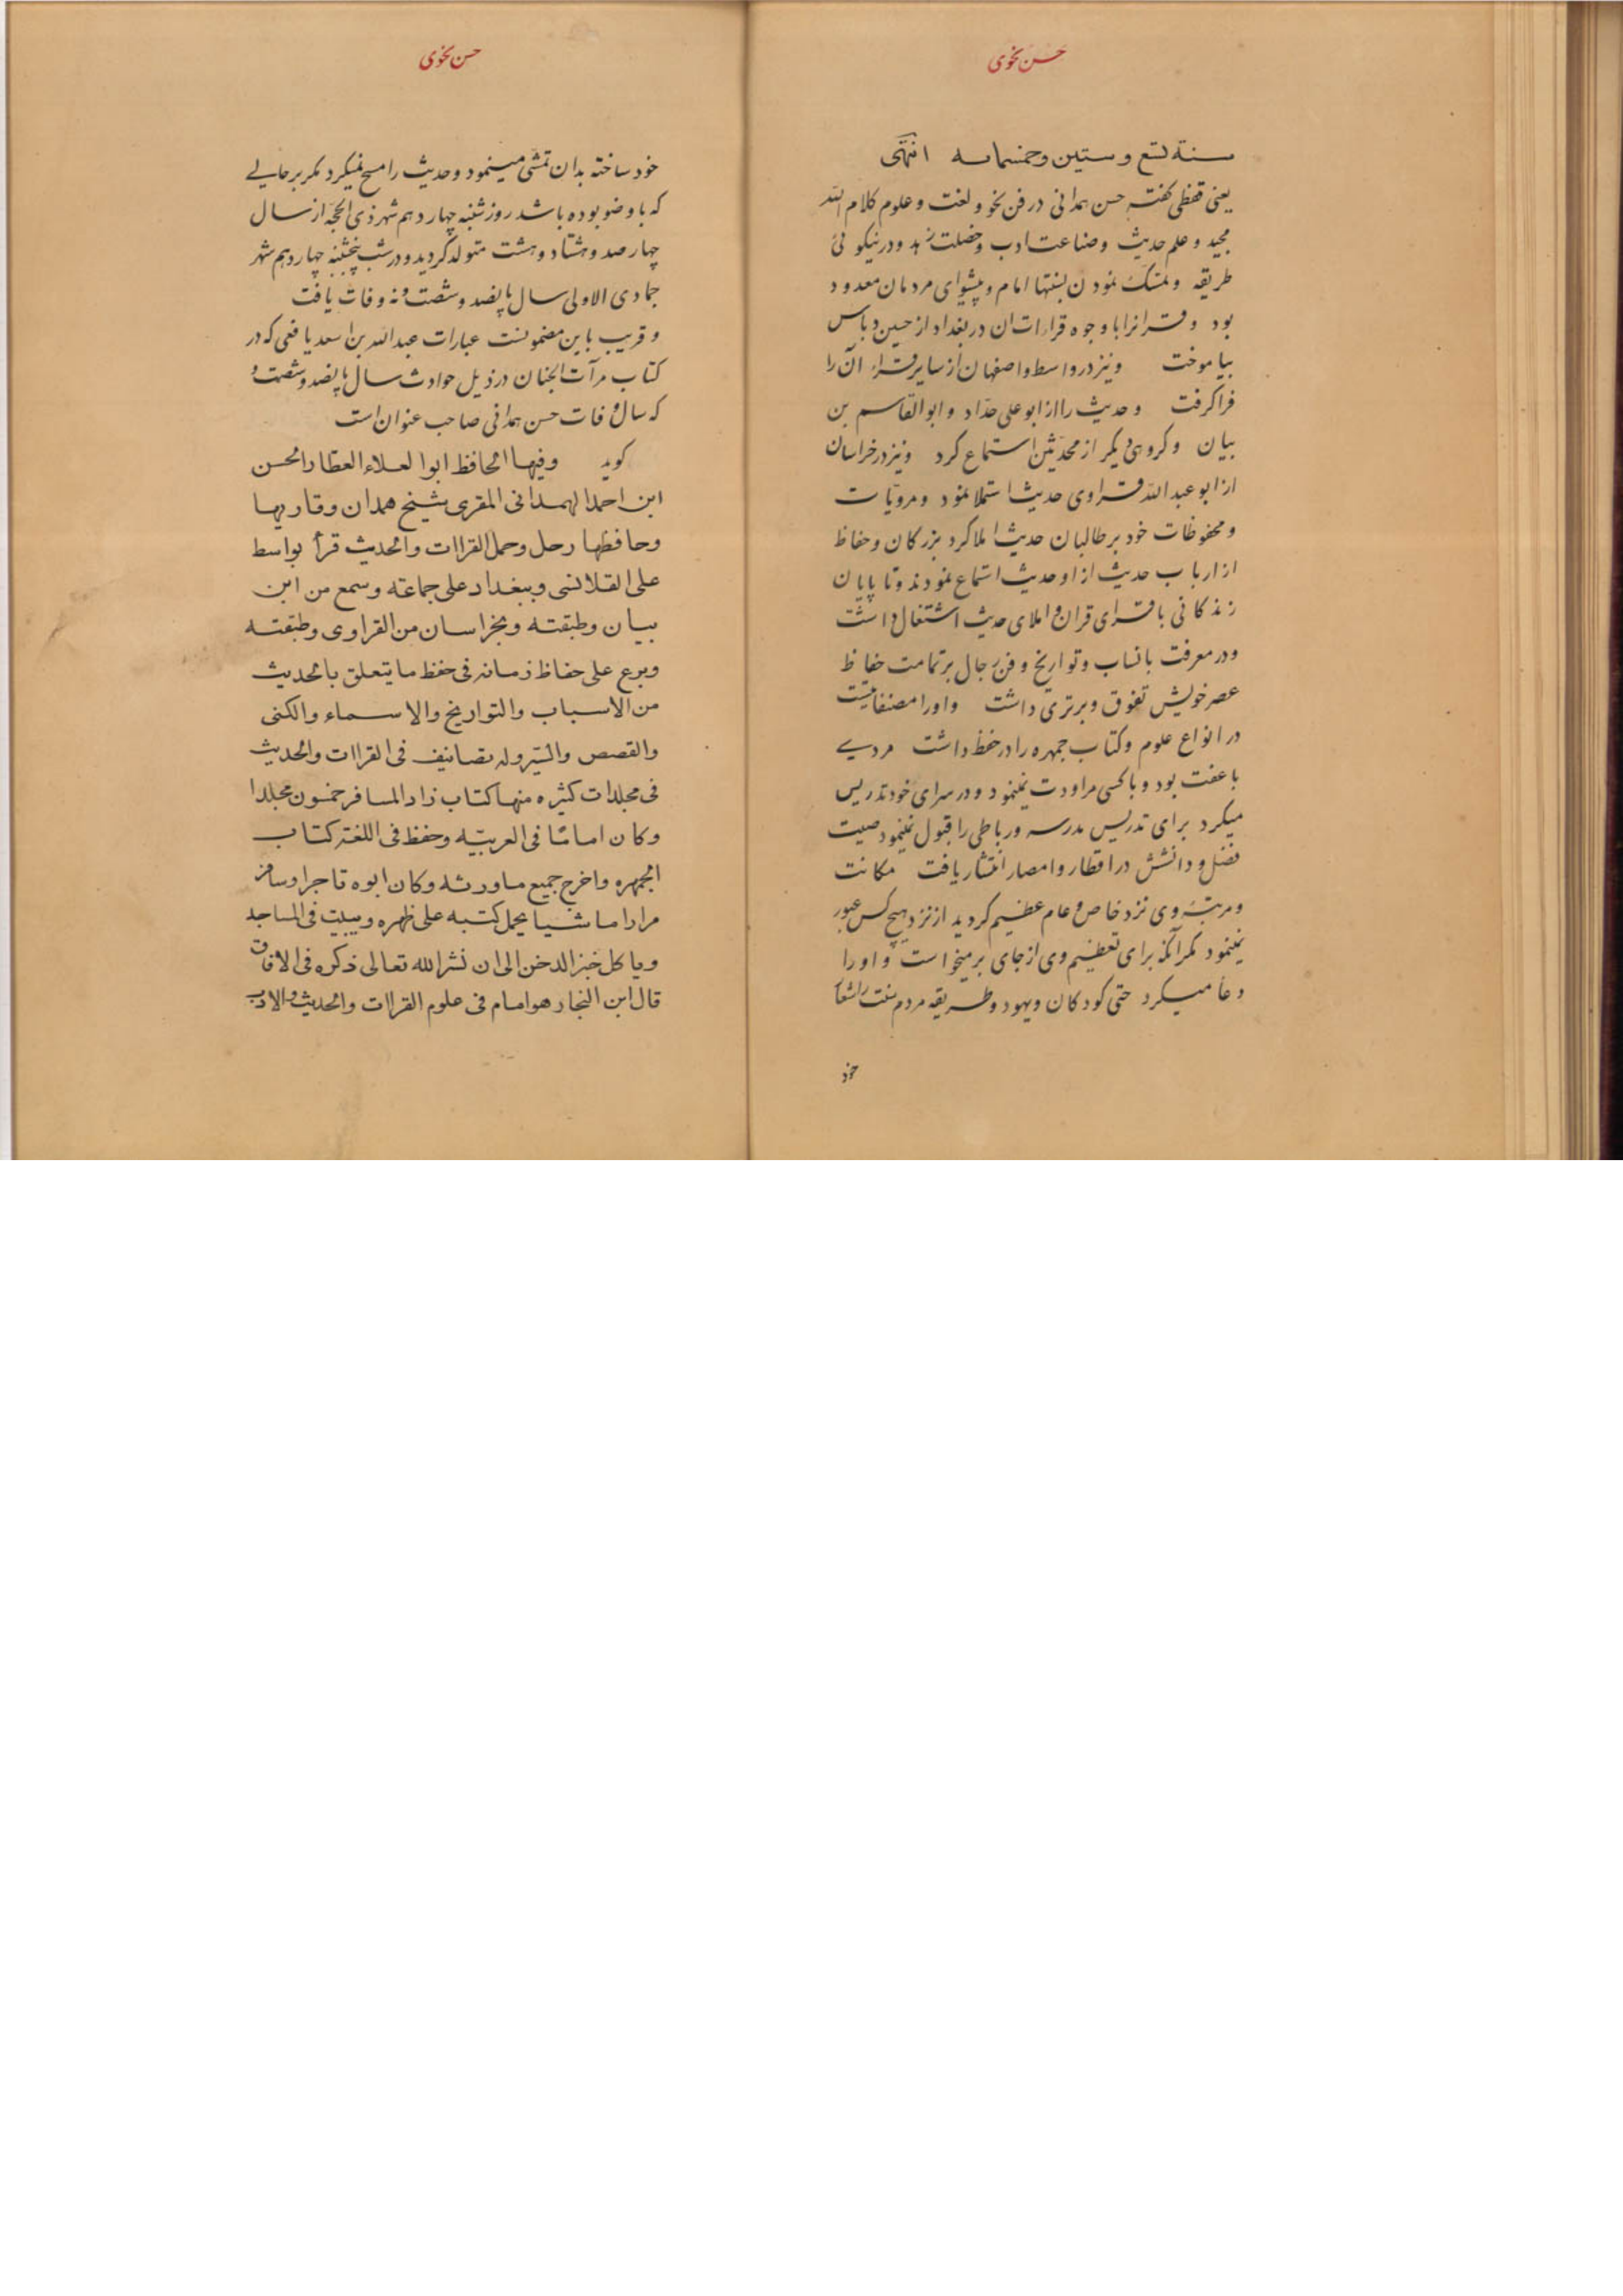 حسن نحوی
سنة تسع و ستین وخمسمائه انتهی
یعنی قفطی گفته حسن همدانی در فن نحو و لغت و علوم کلام الله
مجید و علم حدیث و صناعت ادب و خصلت زهد و در نیکوئی
طریقه و تمسک نمودن بسنتها امام و پیشوای مردمان معدود
بود و قرانرا با وجوه قراءات ان در بغداد از حسین دباس
بیاموخت و نیز در واسط و اصفهان از سایر قراء آن را
فراگرفت و حدیث را از ابو علی حداد و ابو القاسم بن
بیان و گروهی دیگر از محدثین استماع کرد و نیز در خراسان
از ابو عبد الله فراوی حدیث استملا نمود و مرویات
و محفوظات خود بر طالبان حدیث املا کرد بزرگان و حفاظ
از ارباب حدیث از او حدیث استماع نمودند و تا پایان
زندگانی با قرای قران و املای حدیث اشتغال داشت
و در معرفت بانساب و تواریخ و فن رجال بر تمامت حفاظ
عصر خویش تفوق و برتری داشت و او را مصنفاتیست
در انواع علوم و کتاب جمهره را در حفظ داشت مردی
با عفت بود و با کسی مراودت نمینمود و در سرای خود تدریس
میکرد برای تدریس مدرسه و رباطی را قبول نمینمود صیت
فضل و دانشش در اقطار و امصار انتشار یافت مکانت
و مرتبه وی نزد خاص و عام عظیم گردید از نزد هیچ کس عبور
نمینمود مگر آنکه برای تعظیم وی از جای برمیخواست و او را
دعا میکرد حتی کودکان و یهود و طریقه مردم سنت را شعار
خود
حسن نحوی
خود ساخته بدان تمشی مینمود و حدیث را مسح نمیکرد مگر بر حالی
که با وضو بوده باشد روز شنبه چهاردهم شهر ذی الحجه از سال
چهار صد و هشتاد و هشت متولد گردید و در شب پنجشنبه چهاردهم شهر
جمادی الاولی سال پانصد و شصت و نه وفات یافت
و قریب باین مضمونست عبارات عبد الله بن اسعد یافعی که در
کتاب مرآت الجنان در ذیل حوادث سال پانصد و شصت و
که سال وفات حسن همدانی صاحب عنوان است
گوید وفیها الحافظ ابوالعلاء العطار الحسن
ابن احمد الهمدانی المقری شیخ همدان وقاریها
وحافظها رحل وحمل القراات والحدیث قرأ بواسط
علی القلانسی وببغداد علی جماعته وسمع من ابن
بیان وطبقته وبخراسان من الفراوی وطبقته
وبرع علی حفاظ زمانه فی حفظ ما یتعلق بالحدیث
من الاسباب والتواریخ والاسماء والکنی
والقصص والسیر وله تصانیف فی القراات والحدیث
فی مجلدات کثیره منها کتاب زاد المسافر خمسون مجلدا
وکان اماما فی العربیّه وحفظ فی اللغة کتاب
الجمهره واخرج جمیع ما ورثه وکان ابوه تاجرا وسافر
مرارا ماشیا یحمل کتبه علی ظهره ویبیت فی المساجد
ویاکل خبز الدخن الی ان نشر الله تعالی ذکره فی الافاق
قال ابن النجار هو امام فی علوم القراات والحدیث والادب